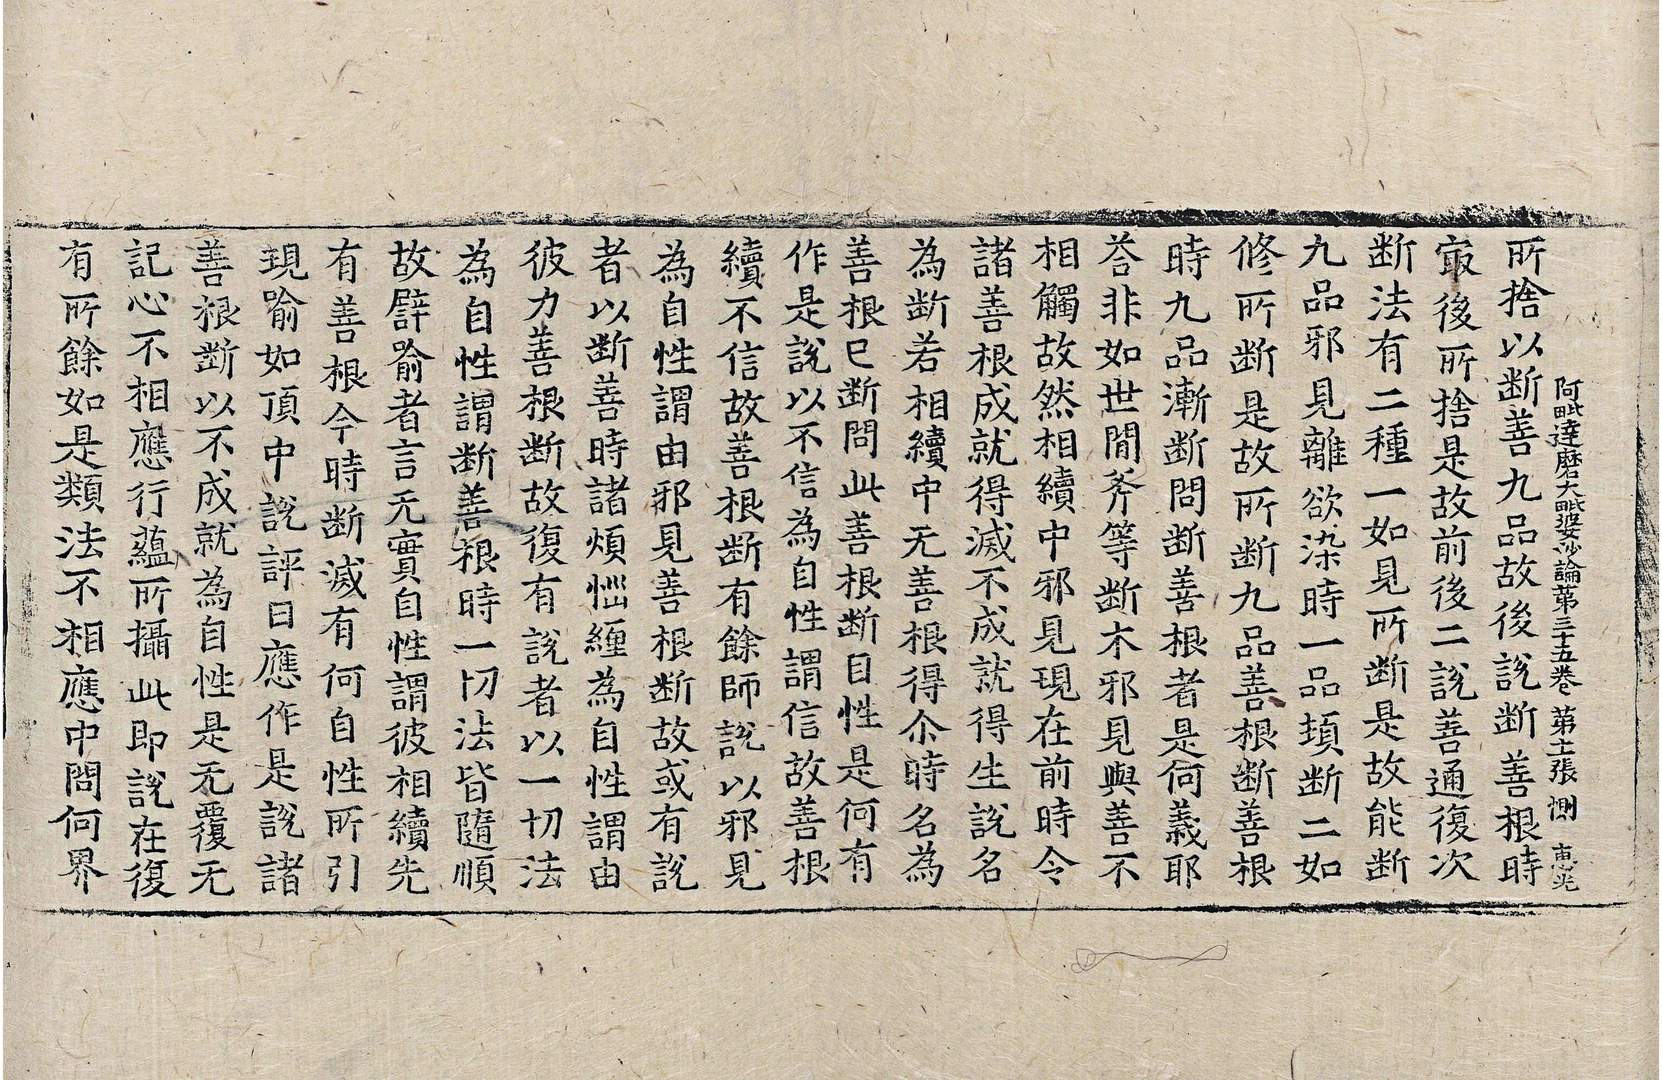 阿毗達磨大毗婆沙論第三十五卷　第十二張　惻　惠光
所捨以断善九品故後說断善根時
㝡後所捨是故前後二說善通復次
断法有二種一如見所断是故能断
九品邪見離欲染時一品頓断二如
修所断是故所断九品善根断善根
時九品漸断問断善根者是何義耶
荅非如世間斧等断木邪見與善不
相觸故然相續中邪見現在前時令
諸善根成就得滅不成就得生說名
為断若相續中无善根得尒時名為
善根已断問此善根断自性是何有
作是說以不信為自性謂信故善根
續不信故善根断有餘師說以邪見
為自性謂由邪見善根断故或有說
者以断善時諸煩惱纏為自性謂由
彼力善根断故復有說者以一切法
為自性謂断善根時一切法皆隨順
故譬喻者言无實自性謂彼相續先
有善根今時断滅有何自性所引
現喻如頂中說評曰應作是說諸
善根断以不成就為自性是无覆无
記心不相應行蘊所攝此即說在復
有所餘如是類法不相應中問何界